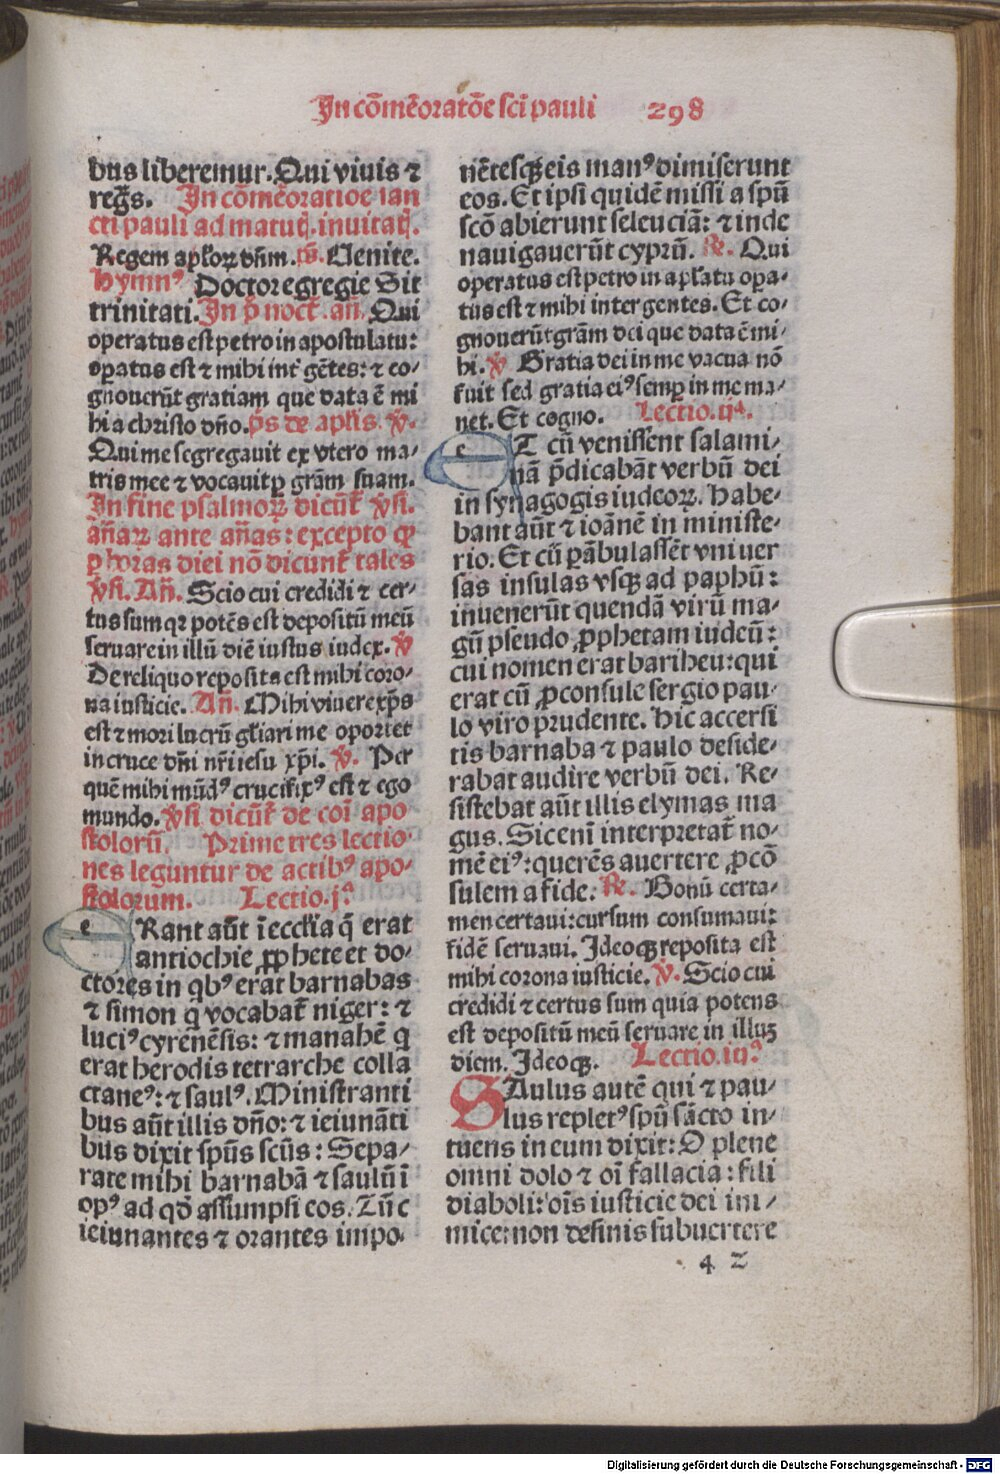 In cōmēoratōe sci pauli 298
bus liberemur. Qui viuis ⁊
regn̄s. In cōmēoratioe san
cti pauli ad matuṭ. inuitaṭ.
Regem apl'oꝝ dn̄m. p̄s. Uenite.
Hymnꝰ Doctor egregie Sit
trinitati. In p̄ noct̄. an̄. Qui
operatus est petro in apostulatu:
operatus est ⁊ mihi int̄ gētes: ⁊ co⸗
gnouerūt gratiam que data ē mi
hi a christo dn̄o. p̄s de apl'is. ℣.
Qui me segregauit ex vtero ma⸗
tris mee ⁊ vocauit ꝑ grām suam.
In fine psalmoꝝ dicūt̄ ℣si.
an̄aꝝ ante an̄as: excepto ꝙ
ꝑ horas diei nō dicunt̄ tales
℣si. An̄. Scio cui credidi ⁊ cer⸗
tus sum qꝛ potēs est depositū meū
seruare in illū diē iustus iudex. ℣
De reliquo reposita est mihi coro⸗
na iusticie. An̄. Mihi viuere xp̄s
est ⁊ mori lucrū gl'iari me oportet
in cruce dn̄i nr̄i iesu xp̄i. ℣. Per
quē mihi mūdꝰ crucifixꝰ est ⁊ ego
mundo. ℣si dicūt̄ de coī apo
stolorū. Prime tres lectio⸗
nes leguntur de actibꝰ apo⸗
stolorum. Lectio.jª
eRant aūt ī eccl'ia q̄ erat
antiochie ꝓphete et do⸗
ctores in qbꝰ erāt barnabas
⁊ simon q̇ vocabat̄ niger: ⁊
luciꝰ cyrenēsis: ⁊ manahē q̇
erat herodis tetrarche colla
ctaneꝰ: ⁊ saulꝰ. Ministranti
bus aūt illis dn̄o: ⁊ ieiunāti
bus dixit spūs scūs: Sepa⸗
rate mihi barnabā ⁊ saulū ī
opꝰ ad qd̄ assumpsi eos. Tūc
ieiunantes ⁊ orantes impo⸗
nētesqꝫ eis manꝰ dimiserunt
eos. Et ipsi quidē missi a spū
scō abierunt seleuciā: ⁊ inde
nauigauerūt cyprū. ℟. Qui
operatus est petro in apl'atu opa⸗
tus est ⁊ mihi inter gentes. Et co⸗
gnouerūt grām dei que data ē mi⸗
hi. ℣ Gratia dei in me vacua nō
fuit sed gratia eiꝰ semꝑ in me ma⸗
net. Et cogno. Lectio.ijª.
eT cū venissent salami⸗
nā p̄dicabāt verbū dei
in synagogis iudeoꝝ. Habe⸗
bant aūt ⁊ ioānē in ministe⸗
rio. Et cū ꝑābulassēt vniuer
sas insulas vsqꝫ ad paphū:
inuenerūt quendā virū ma⸗
gū pseudo ꝓphetam iudeū:
cui nomen erat bariheu: qui
erat cū ꝓconsule sergio pau⸗
lo viro prudente. Hic accersi
tis barnaba ⁊ paulo deside⸗
rabat audire verbū dei. Re⸗
sistebat aūt illis elymas ma
gus. Sic enī interpretat̄ no⸗
mē eiꝰ: querēs auertere ꝓcō
sulem a fide. ℟. Bonū certa⸗
men certaui: cursum consumaui:
fidē seruaui. Ideoqꝫ reposita est
mihi corona iusticie. ℣. Scio cui
credidi ⁊ certus sum quia potens
est depositū meū seruare in illuꝫ
diem. Ideoqꝫ. Lectio.iijª
SAulus autē qui ⁊ pau⸗
lus repletꝰ spū sācto in⸗
tuens in eum dixit: O plene
omni dolo ⁊ oī fallacia: fili
diaboli: oīs iusticie dei ini⸗
mice: non definis subuertere
4 Z
Digitalisierung gefördert durch die Deutsche Forschungsgemeinschaft - DFG